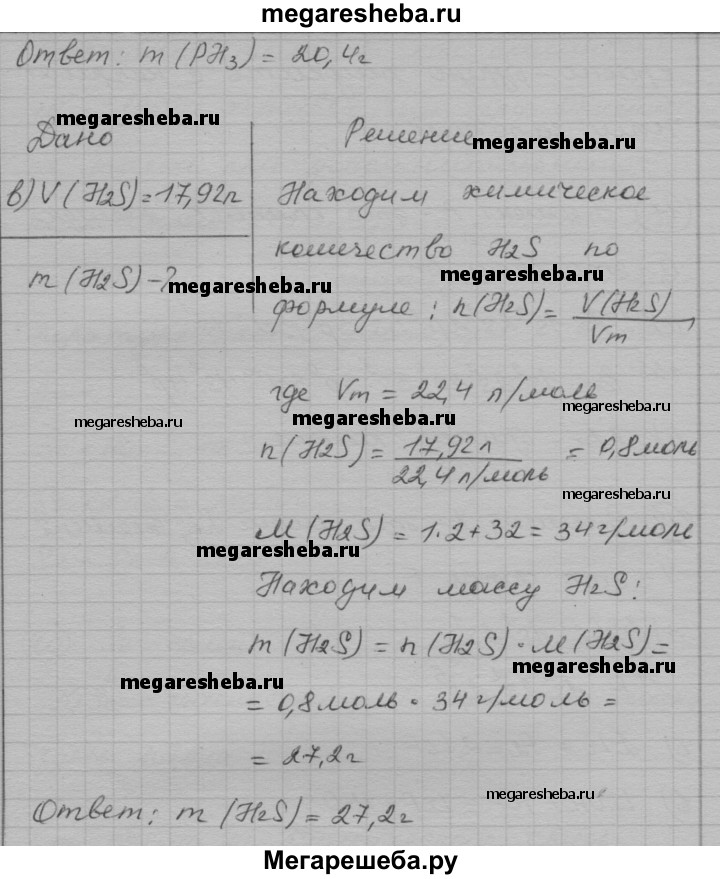 megaresheba.ru
Ответ: m (PH3) = 20,4г
megaresheba.ru
Дано
Решение
megaresheba.ru
в) V (H2S) = 17,92л
Находим химическое
количество H2S по
megaresheba.ru
m (H2S) - ?
megaresheba.ru
формуле: n(H2S) = V(H2S) / Vm,
где Vm = 22,4 л/моль
megaresheba.ru
megaresheba.ru
megaresheba.ru
n(H2S) = 17,92л / 22,4 л/моль = 0,8моль
megaresheba.ru
M (H2S) = 1·2+32 = 34г/моль
megaresheba.ru
Находим массу H2S:
m (H2S) = n (H2S) · M (H2S) =
megaresheba.ru
= 0,8моль · 34г/моль =
= 27,2г
megaresheba.ru
Ответ: m (H2S) = 27,2г
Мегарешеба.ру